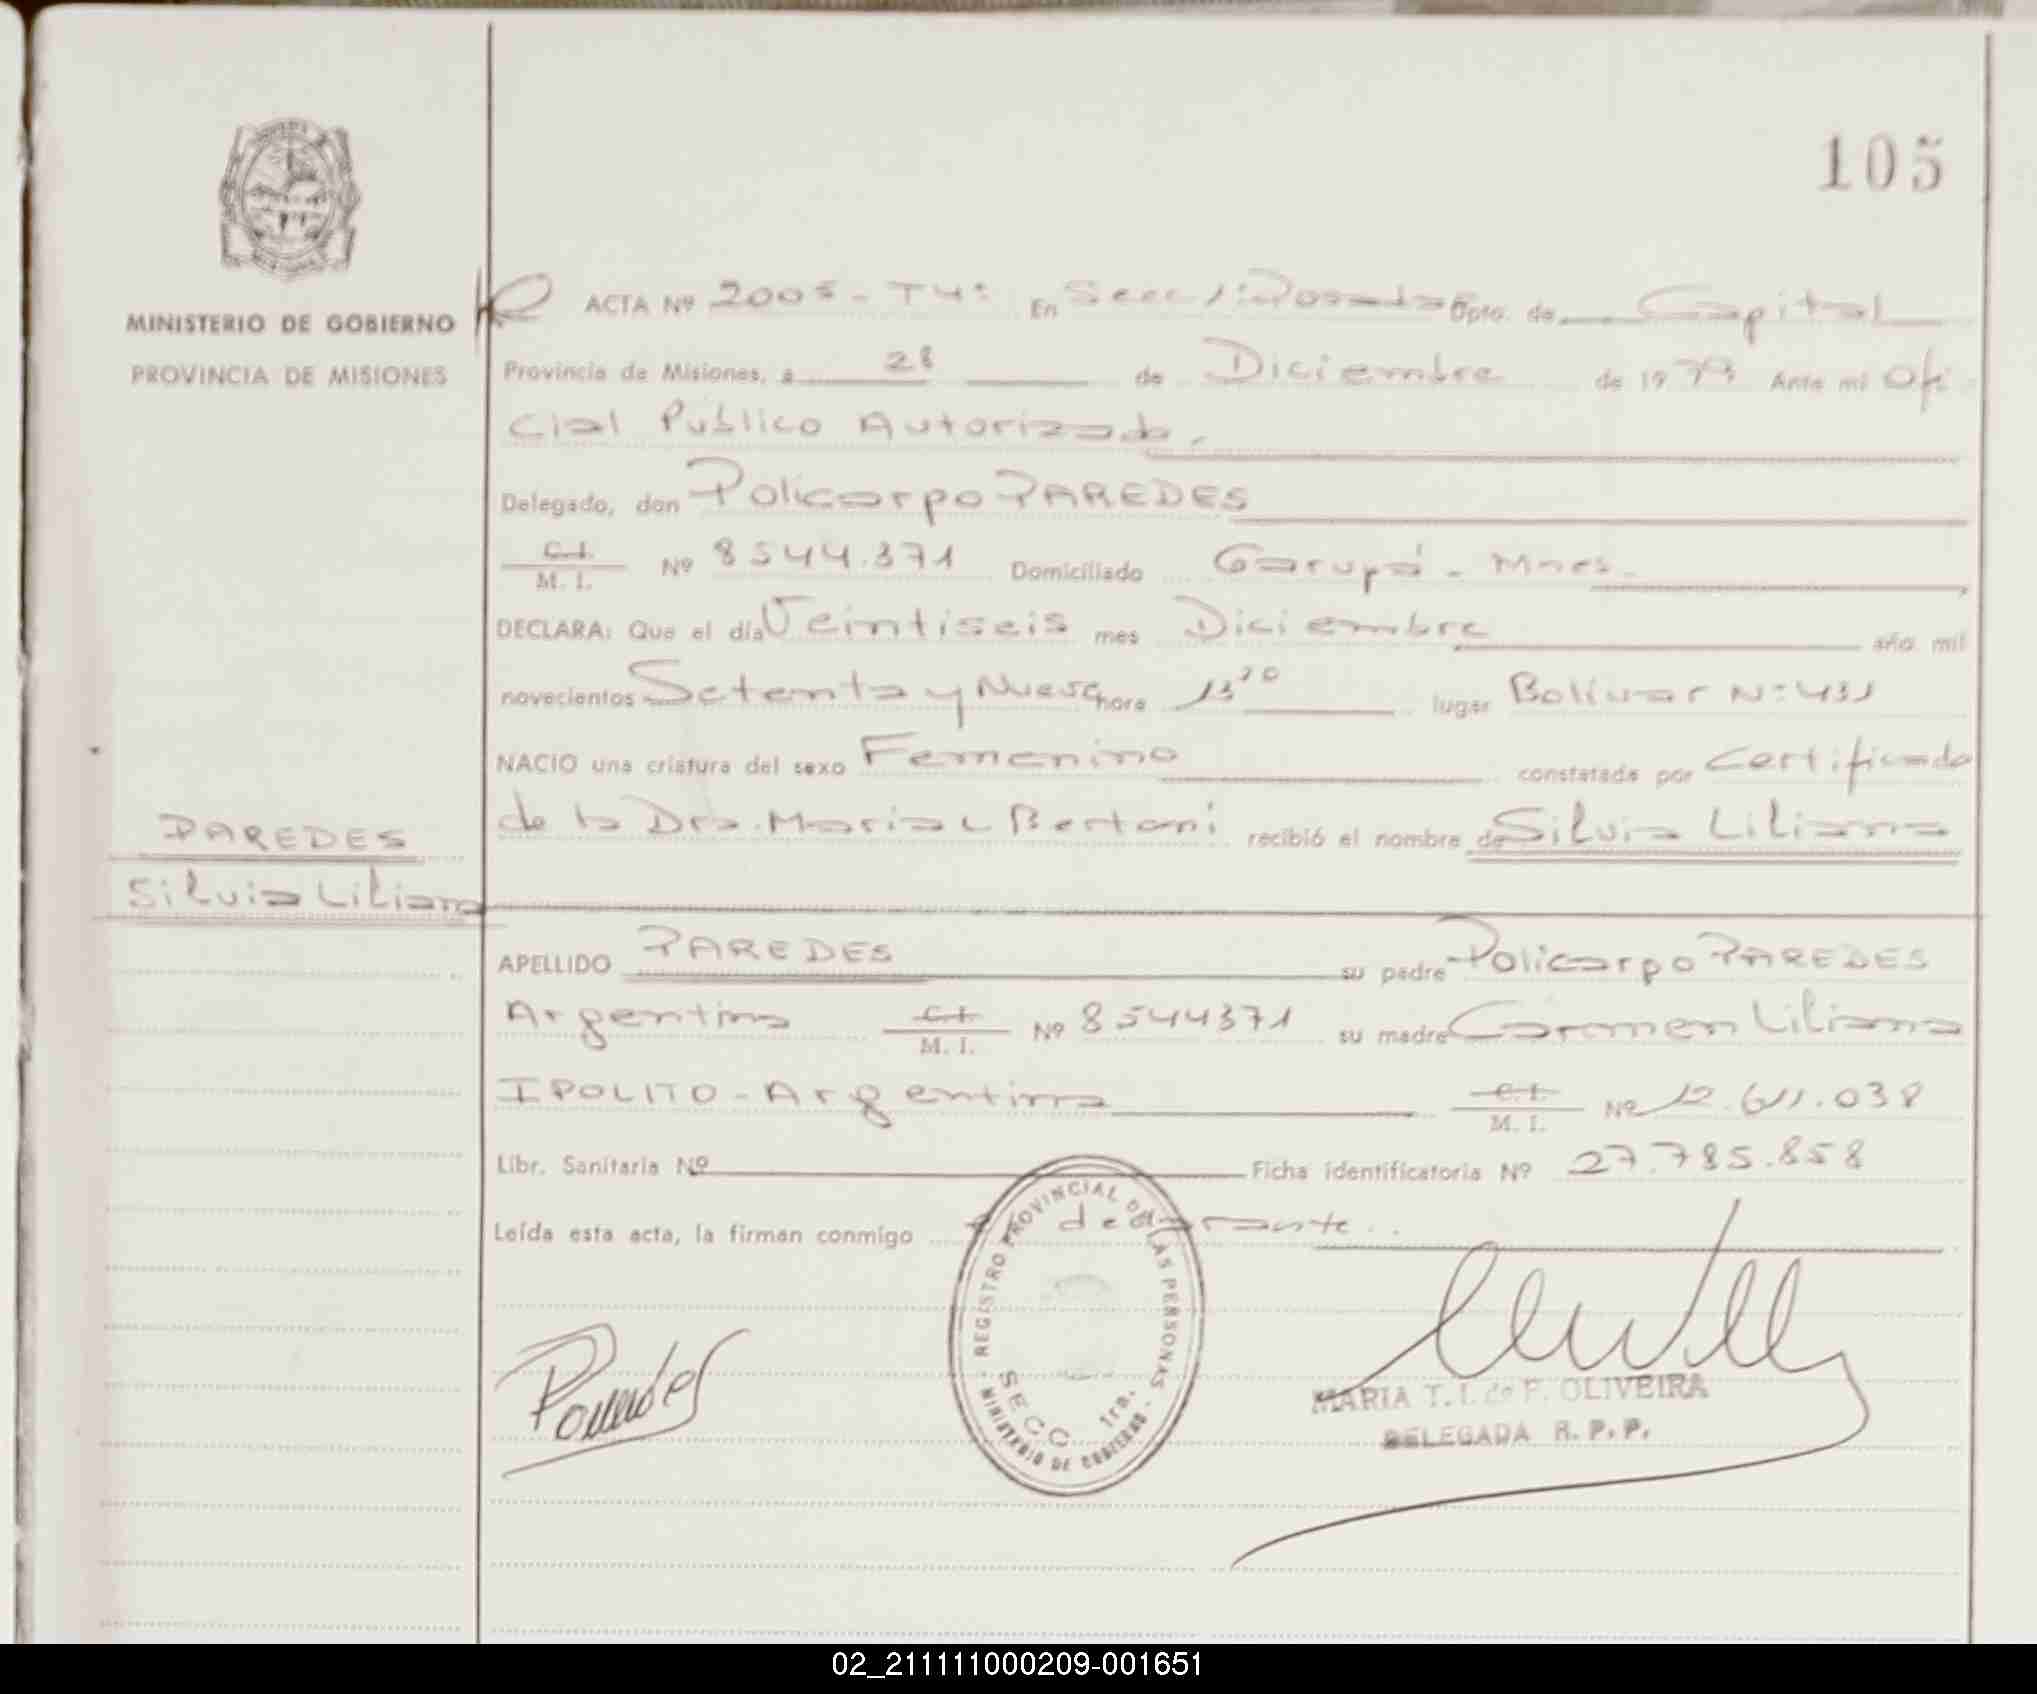 105
MINISTERIO DE GOBIERNO
PROVINCIA DE MISIONES
ACTA Nº 2005 - T4º En Secc 1: Posadas Dpto. de Capital
Provincia de Misiones, a 28 de Diciembre de 1979 Ante mi Ofi
cial Público Autorizado.
Delegado, don Policarpo PAREDES
C.I.
M. I. Nº 8544.371 Domiciliado Garupá - Mnes.
DECLARA: Que el día Veintiseis mes Diciembre año mil
novecientos Setenta y Nueve hora lugar Bolívar Nº 431
NACIO una criatura del sexo Femenino constatada por Certificado
de la Dra. Maria L Bertoni recibió el nombre de Silvia Liliana
PAREDES
Silvia Liliana
APELLIDO PAREDES su padre Policarpo PAREDES
Argentino C.I.
M. I. Nº 8544371 su madre Carmen Liliana
IPOLITO - Argentina C.I.
M. I. Nº 12.611.038
Libr. Sanitaria Nº Ficha identificatoria Nº 27.785.858
Leída esta acta, la firman conmigo el declarante.
REGISTRO PROVINCIAL DE LAS PERSONAS
SECC 1ra.
MINISTERIO DE GOBIERNO
Paredes
MARIA T. I. de F. OLIVEIRA
DELEGADA R. P. P.
02_211111000209-001651